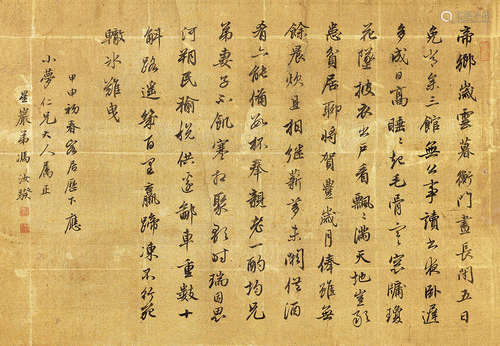 帝鄉歲雲暮衡門晝長閉五日
免常參三館無公事讀書夜卧遲
多成日高睡〻起毛骨寒窓牖瓊
花墜披衣出户看飄〻滿天地豈敢
患貧居聊將賀豐歲月俸雖無
餘晨炊且相繼薪芻未闕供酒
肴亦能備數杯奉親老一酌均兄
弟妻子不飢寒相聚歌時瑞因思
河朔民輸挽供邊鄙車重數十
斛路遥幾百里羸蹄凍不行死
轍冰難曳
甲申初春客居歷下應
小夢仁兄大人属正
星巖弟馮汝騤